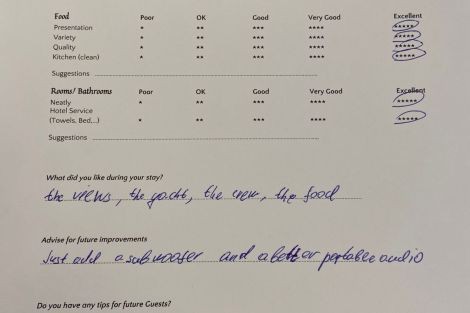 Food Poor OK Good Very Good Excellent
Presentation * ** *** **** *****
Variety * ** *** **** *****
Quality * ** *** **** *****
Kitchen (clean) * ** *** **** *****
Suggestions
Rooms/ Bathrooms Poor OK Good Very Good Excellent
Neatly * ** *** **** *****
Hotel Service
(Towels, Bed,...) * ** *** **** *****
Suggestions
What did you like during your stay?
the views, the yacht, the crew, the food
Advise for future improvements
Just add a subwoofer and a better portable audio
Do you have any tips for future Guests?